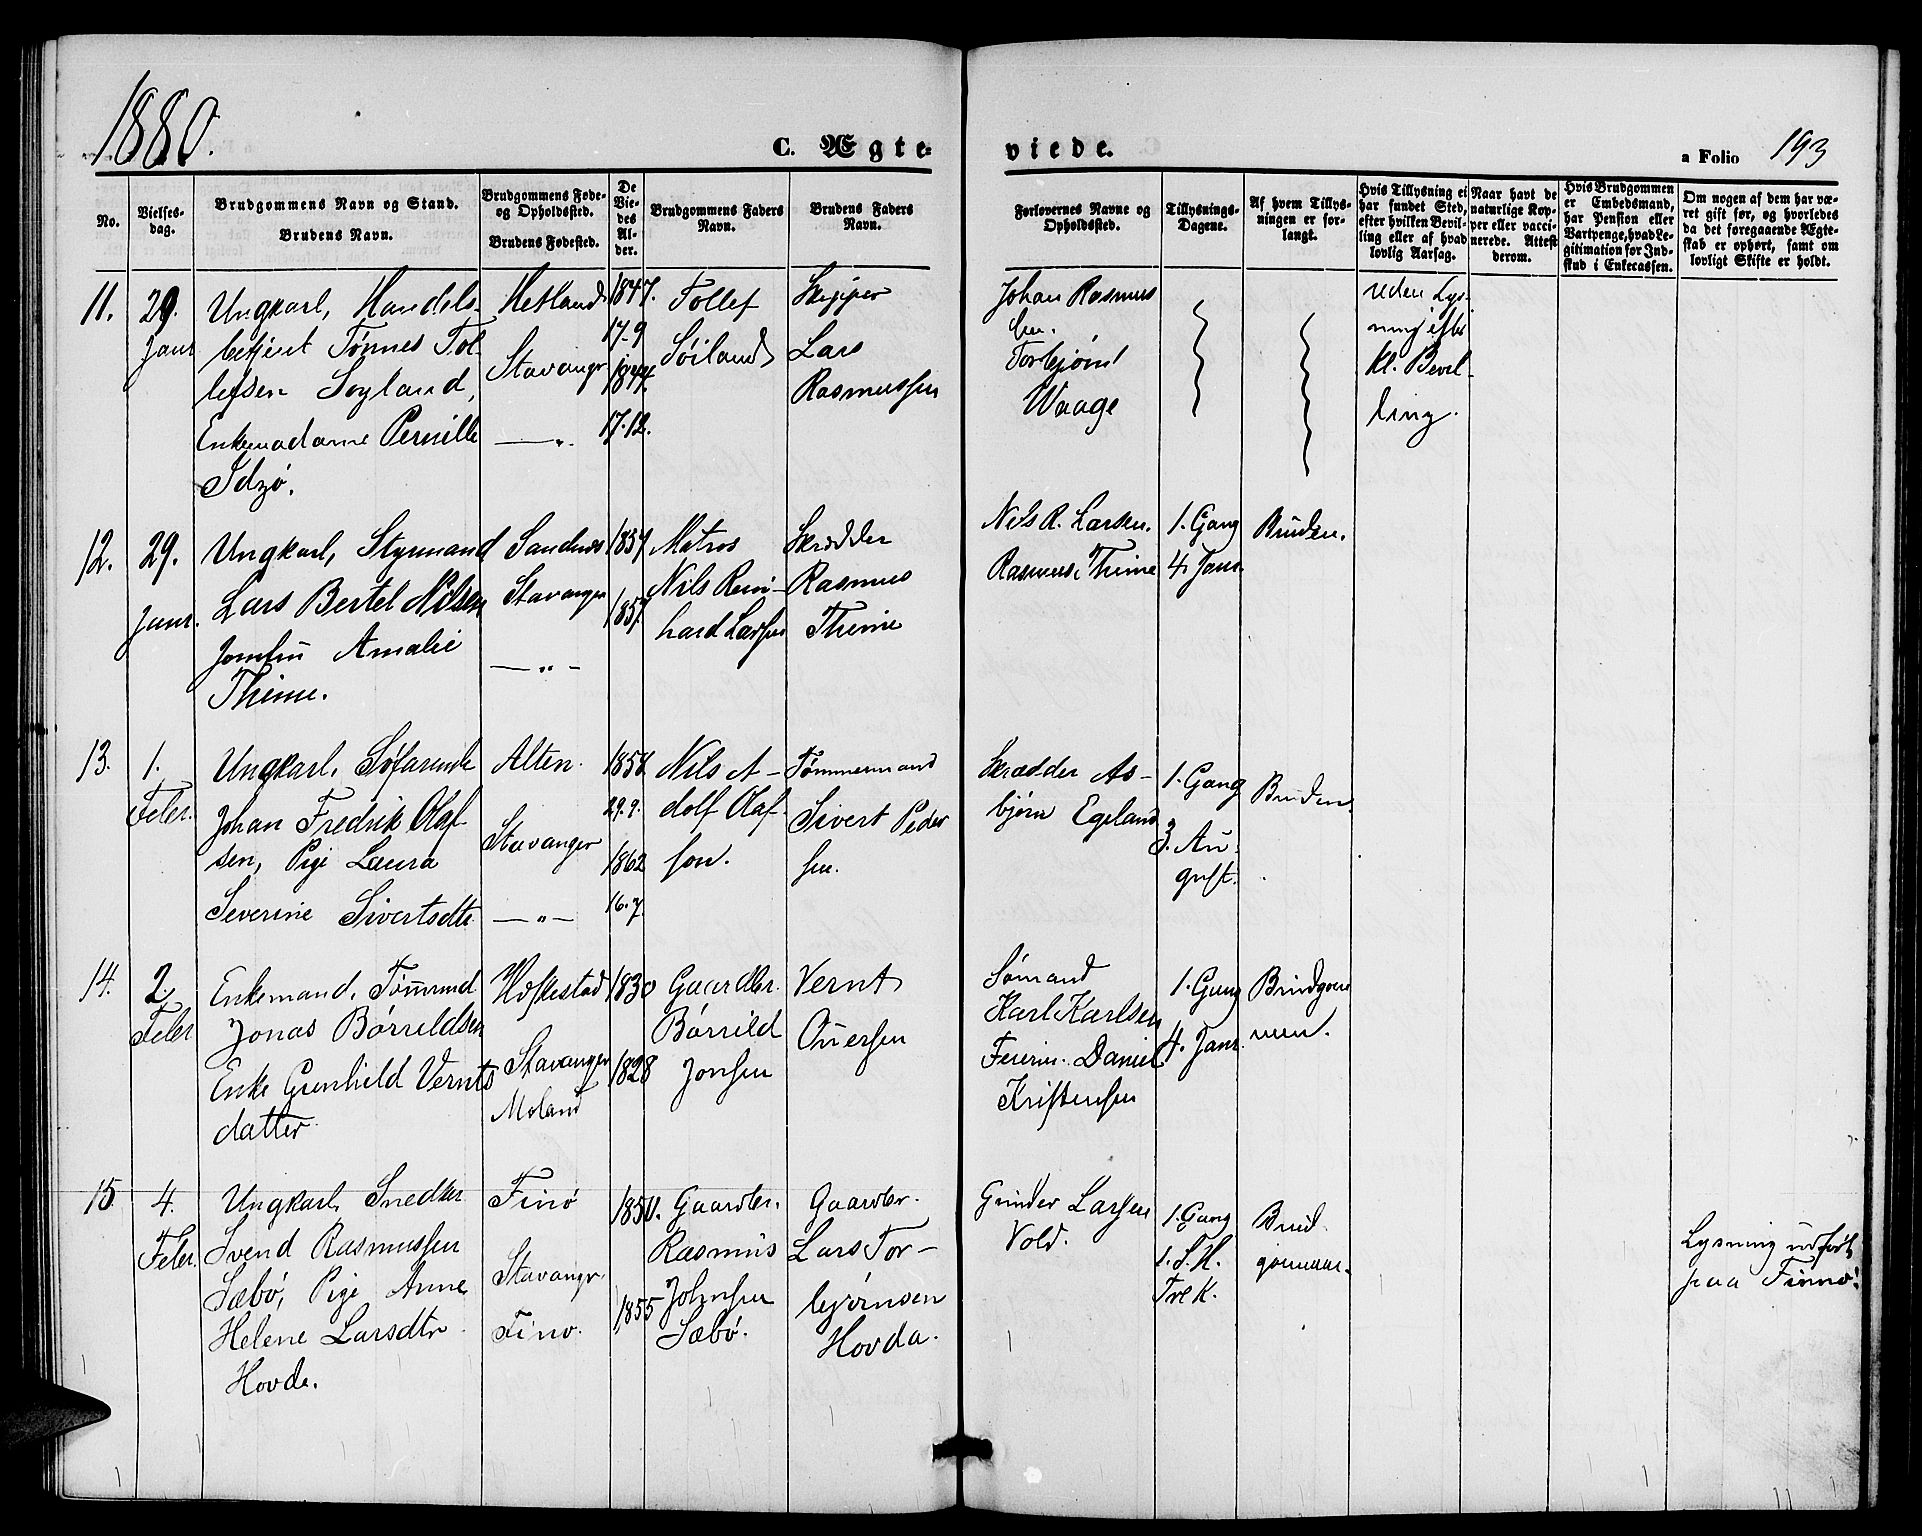 1880.
C. Ægte-
viede.
a Folio 193
No.
Vielses-
dag.
Brudgommens Navn og Stand.
Brudens Navn.
Brudgommens Føde-
og Opholdssted.
Brudens Fødested.
De
Vie-
des
Al-
der.
Brudgommens Faders
Navn.
Brudens Faders
Navn.
Forlovernes Navne og
Opholdssted.
Tillysnings-
Dagene.
Af hvem Tillys-
ningen er for-
langt.
Hvis Tillysning ei
har fundet Sted,
efter hvilken Bevil-
ling eller af hvad
lovlig Aarsag.
Naar havt de
naturlige Kop-
per eller vacci-
nerede. Attest
derom.
Hvis Brudgommen
er Embedsmand,
har Pension eller
Vartpenge, hvad Le-
gitimation for Ind-
skud i Enkecassen.
Om nogen af dem har væ-
ret gift før, og hvorledes
da det foregaaende Ægte-
skab er ophørt, samt om
lovligt Skifte er holdt.
11.
29.
Janr
Ungkarl, Handels-
betjent Tønnes Tol-
lefsen Soyland,
Enkemadame Pernille
Idzø.
Hetland
Stavangr
— „ .
1847.
17.9
1844.
17.12.
Tollef
Søiland
Skipper
Lars
Rasmussen
Johan Rasmus
sen.
Torbjørn
Waage
uden Lys-
ning efter
kl. Bevil-
ling.
12.
29.
Janr.
Ungkarl, Styrmand
Lars Bertel Nilsen
Jomfru Amalie
Thime.
Sandnes
Stavanger
— „ —
1857
1857.
Matros
Nils Rein-
hard Larsen
Skrædder
Rasmus
Thime
Nils R. Larsen.
Rasmus Thime
1. Gang
4. Janr.
Bruden.
13.
1.
Febr.
Ungkarl, Søfarende
Johan Fredrik Olaf
sen, Pige Laura
Severine Sivertsdtr
Alten.
Stavanger
— „ —
1858.
29.9.
1862
16.7.
Nils A-
dolf Olaf
sen.
Tømmermand
Sivert Peder
sen.
Skrædder As-
bjørn Egeland
1. Gang
3. Au-
gust.
Bruden.
14.
2.
Febr
Enkemand, Tømmnd.
Jonas Børrildsen
Enke Gunhild Vernts
datter.
Høfkestad
Stavanger
Moland
1830
1828
Gaardbr.
Børrild
Jonsen
Vernt
Ouersen
Sømand
Karl Karlsen
Feierm. Daniel
Kristensen
1. Gang
4. Janr.
Brudgom
men.
15.
4.
Febr.
Ungkarl, Snedker
Svend Rasmussen
Sæbø, Pige Anne
Helene Larsdtr
Hovda.
Finø
Stavangr.
Fino.
1850.
1855
Gaardbr.
Rasmus
Johnsen
Sæbø.
Gaardbr.
Lars Tor-
bjørnsen
Hovda.
Larsen
Vold.
1. Gang
1. S. H.
Tre K.
Brud-
gommen.
Lysning udført
paa Finnø.